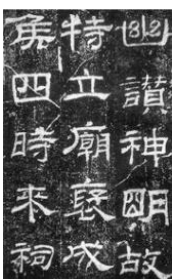 幽讃神明故
特立廟褒成
侯四時来祠